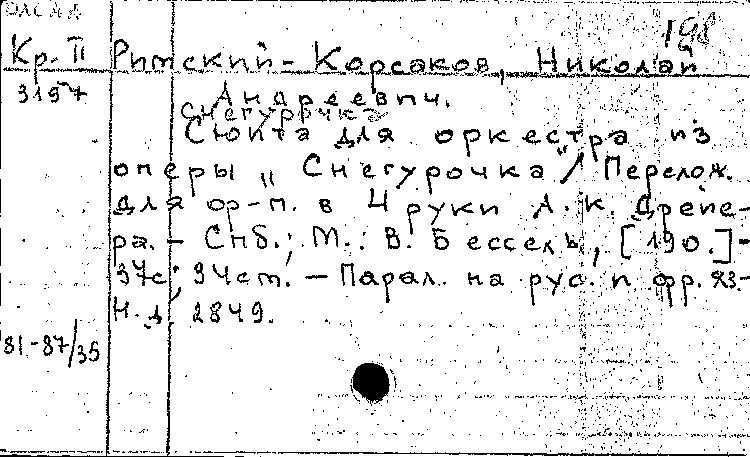 198
Кр.-II Римский-Корсаков, Николай
3197 Андреевич.
Снегурочка
Сюита для оркестра из
оперы „Снегурочка"/ Перелож.
для ф-п. в 4 руки А. К. Дрейе-
ра. - Спб.; М.: В. Бессель, [190.]-
37с; 34см. - Парал. на рус. и фр. яз.-
Н.д. 2849.
81-87/35